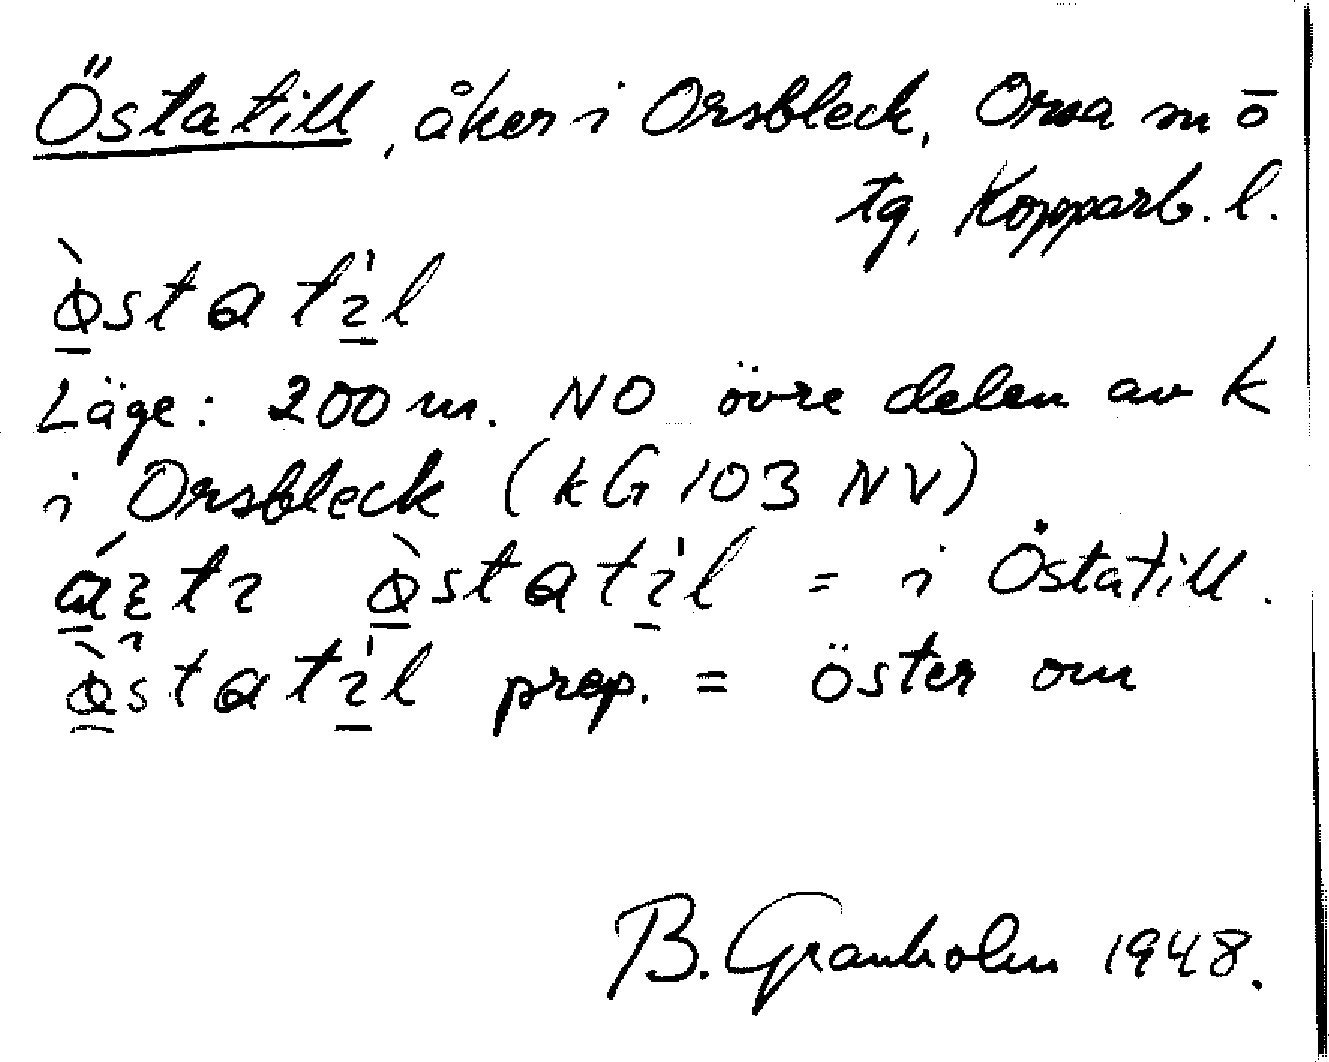 Östatill, åker i Orsbleck, Orsa sn ö
tg, Kopparb. l.
Läge: 200 m. NO övre delen av k
i Orsbleck (kG 103 NV)
= i Östatill.
prep. = öster om
B. Granholm 1948.